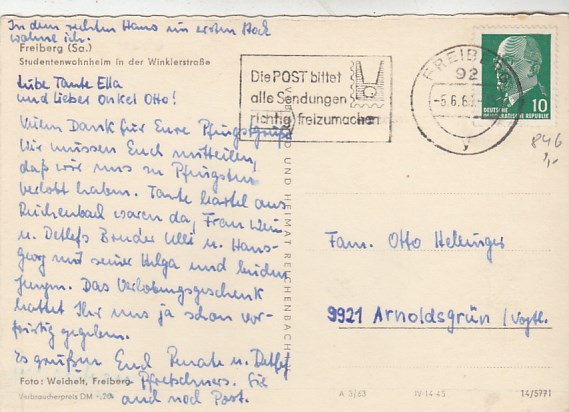 In dem rechten Haus im ersten Stock
wohne ich.
Freiberg (Sa.)
Studentenwohnheim in der Winklerstraße
Liebe Tante Ella
und lieber Onkel Otto!
Vielen Dank für Eure Pfingstgrüße
Wir müssen Euch mitteilen,
daß wir uns zu Pfingsten
verlobt haben. Tante
Reichenbach waren da, Frau
u. Detlefs Bruder Ulli u. Hans-
georg mit seiner Helga und beiden
Jungen. Das Verlobungsgeschenk
hattet Ihr uns ja schon vor-
fristig gegeben.
Es grüßen Euch Renate u. Detlef
Foto: Weichelt, Freiberg
Pretschners. Sie
Verbraucherpreis DM -,20
auch noch Post.
UND HEIMAT REICHENBACH
Die POST bittet
alle Sendungen
richtig freizumachen
FREIBERG
92
-5.6.63
y
10
DEUTSCHE
DEMOKRATISCHE REPUBLIK
846
1,-
Fam. Otto Hellinger
9921 Arnoldsgrün / Vogtl.
A 3/63
IV-14-45
14/5771